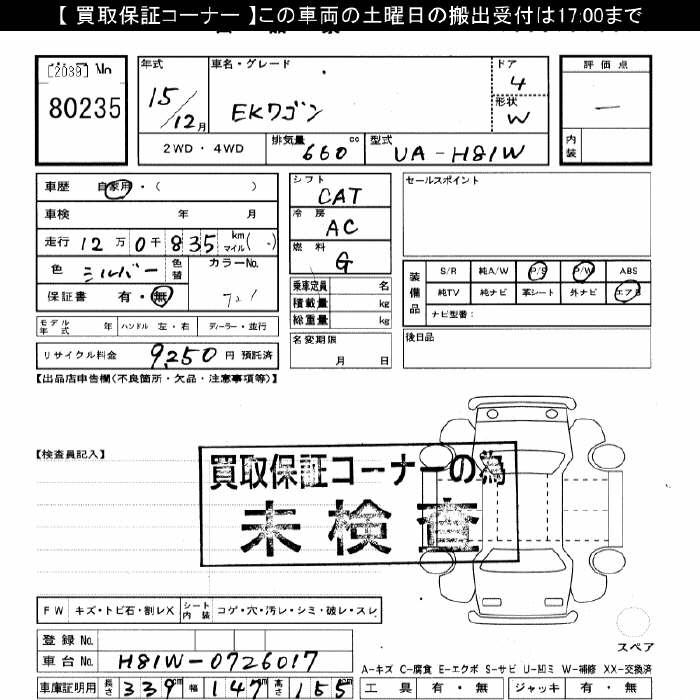 【 買取保証コーナー 】この車両の土曜日の搬出受付は17:00まで
[2039] No
80235
年式 車名・グレード ドア 評価点
15/12月 EKワゴン 4
形状 W
2WD・4WD 排気量 660 cc 型式 UA-H81W
内装
車歴 自家用・( )
車検 年 月
走行 12万0千835 km マイル( )
色 シルバー 色替 カラーNo.
保証書 有・無
シフト CAT
冷房 AC
燃料 G
乗車定員 名
積載量 kg
総重量 kg
セールスポイント
装備品 S/R 純A/W P/S P/W ABS
純TV 純ナビ 革シート 外ナビ エアB
ナビ型番:
モデル年式 年 ハンドル 左・右 ディーラー・並行
名変期限 月 日
後日品
リサイクル料金 9,250 円 預託済
【出品店申告欄(不良箇所・欠品・注意事項等)】
【検査員記入】
買取保証コーナーの為
未検査
FW キズ・トビ石・割レX シート内装 コゲ・穴・汚レ・シミ・破レ・スレ
登録 No.
車台 No. H81W-0726017
スペア
A-キズ C-腐食 E-エクボ S-サビ U-凹ミ W-補修 XX-交換済
車庫証明用 長さ 339 cm 幅 147 cm 高さ 155 cm 工具 有・無 ジャッキ 有・無